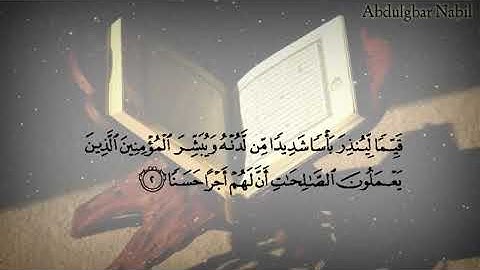 Abdulgbar Nabil
قَيِّمٗا لِّيُنذِرَ بَأۡسٗا شَدِيدٗا مِّن لَّدُنۡهُ وَيُبَشِّرَ ٱلۡمُؤۡمِنِينَ ٱلَّذِينَ
يَعۡمَلُونَ ٱلصَّٰلِحَٰتِ أَنَّ لَهُمۡ أَجۡرًا حَسَنٗا ٢